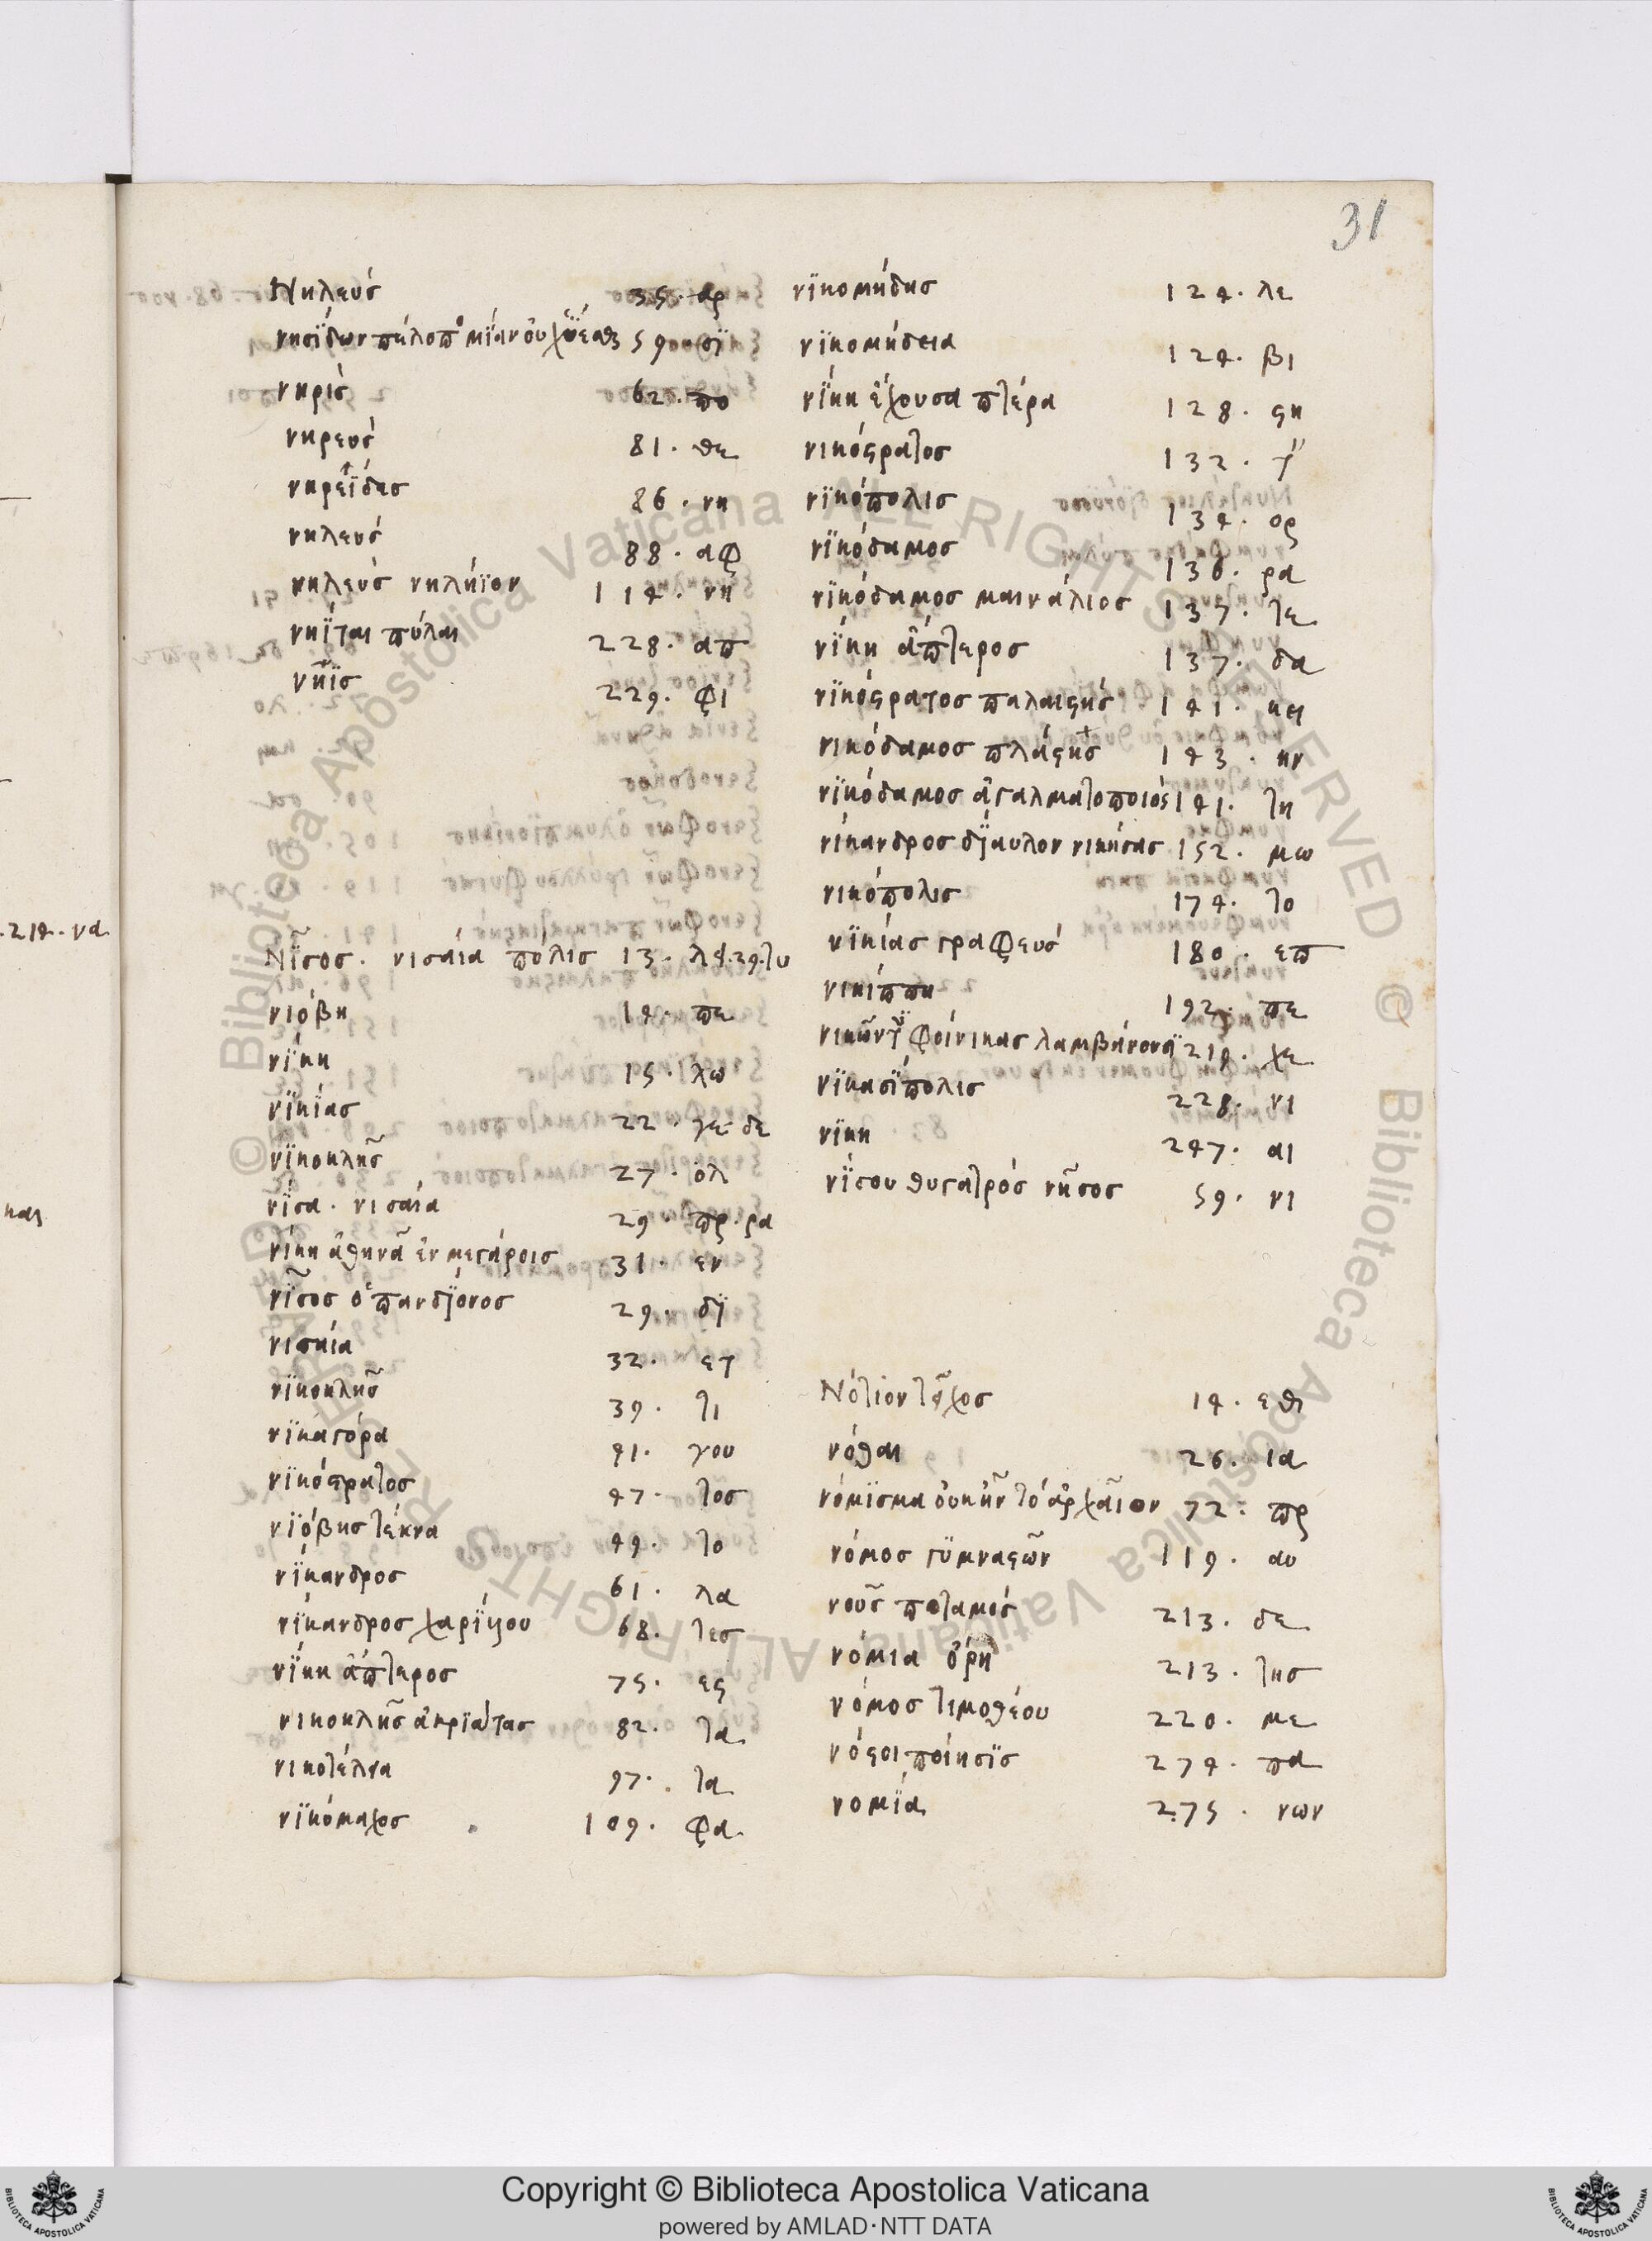 31
Νηλεύς 35· αρ
νησίδων 59· σϊ
νηρίς 62· πο
νηρεύς 81· θε
νηρεΐδες 86· νη
νηλεύς 88· αφ
νηλεύς νηλήϊον 114· νη
νηΐται πύλαι 228· απ
νηΐς 229· φι
Νῖσος· νισαία πόλις 13· 39· τυ
νιόβη 14· πε
νίκη 15· λω
νϊκίας 22· γε δε
νϊκοκλῆς 27· ολ
νίσα· νισαία 29· πρ· ρα
νίκη ἀθηνᾶ ἐν μεγάροις 31· εν
νῖσος ὁ πανδίονος 29· δϊ
νισαία 32· ετ
νϊκοκλῆς 39· τι
νϊκαγόρα 41· γου
νϊκόστρατος 47· τος
νϊόβης τέκνα 49· το
νίκανδρος 61· λα
νίκανδρος χαρίλου 68· τες
νίκη ἄπτερος 75· ες
νικοκλῆς ἀκρϊάτας 82· τα
νικοτέλεα 97· τα
νϊκόμαχος 109· φα
νϊκομήδης 124· λε
νϊκομήδεια 124· βι
νίκη ἔχουσα πτέρα 128· στη
νικόστρατος 132·
νϊκόπολις 134· ορ
νϊκόδαμος 136· ρα
νϊκόδαμος μαινάλιος 137· τε
νίκη ἄπτερος 137· δα
νϊκόστρατος παλαιστής 141· κει
νικόδαμος πλάστης 143· ην
νϊκόδαμος ἀγαλματοποιός 141· τη
νίκανδρος δίαυλον νικήσας 152· μω
νικόπολις 174· το
νϊκίας γραφεύς 180· επ
νικίππη 192· πε
φοίνικας λαμβάνουσι 214· χε
νϊκασίπολις 228· νι
νίκη 247· αι
νίσου θυγατρός νῆσος 59· νι
Νότιον τεῖχος 14· εθι
νόθαι 26· ια
νόμϊσμα οὐκ ἦν τό ἀρχαῖον 72· πρ
νόμος γϋμναστῶν 119· αυ
νοῦς ποταμός 213· δε
νόμια ὄρη 213· της
νόμος τιμοθέου 220· με
νόστοι ποίησϊς 274· πα
νομία 275· νων